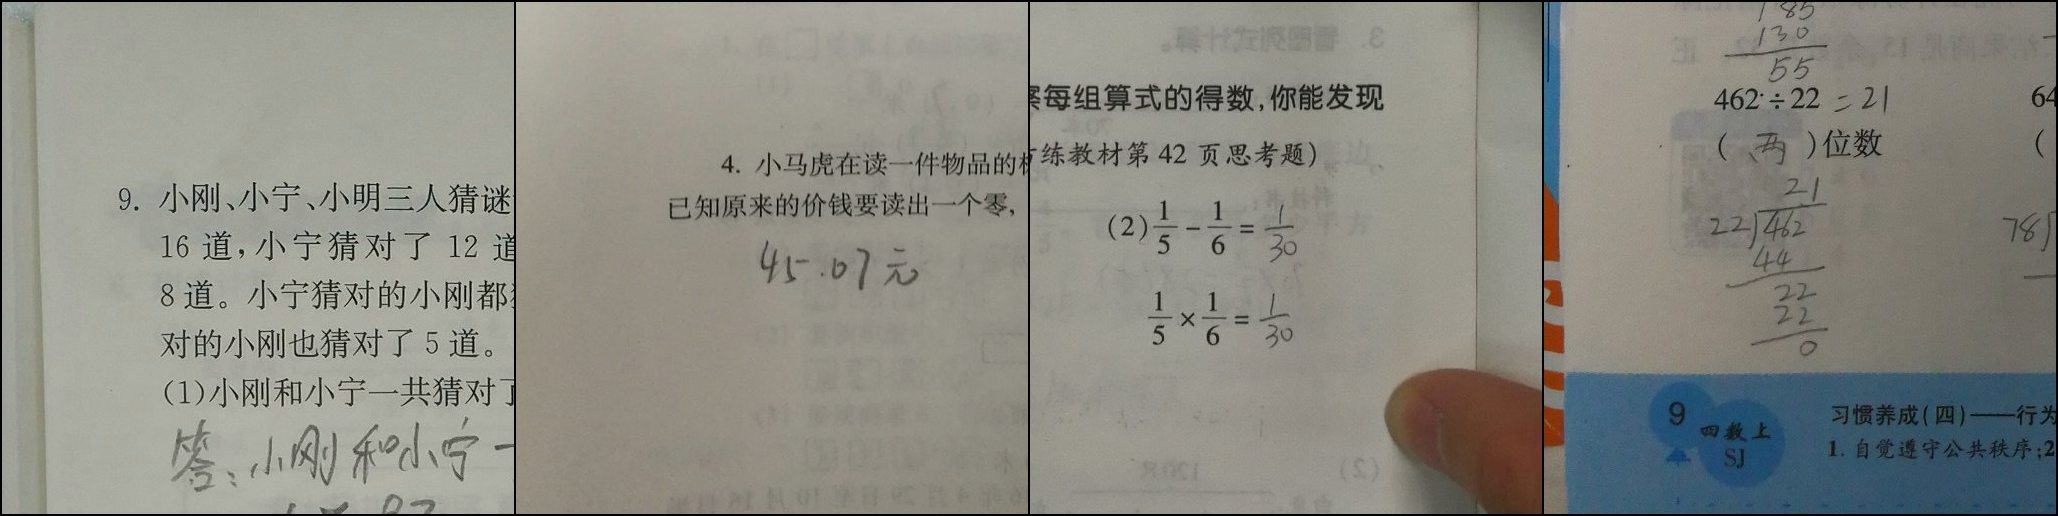 9. 小刚、小宁、小明三人猜谜
16 道,小宁猜对了 12 道
8 道。小宁猜对的小刚都
对的小刚也猜对了 5 道。
(1)小刚和小宁一共猜对了
答:小刚和小宁一
4. 小马虎在读一件物品的
已知原来的价钱要读出一个零,
45.07元
察每组算式的得数,你能发现
练教材第 42 页思考题)
(2) 1/5 - 1/6 = 1/30
1/5 × 1/6 = 1/30
185
130
55
462÷22 = 21
64
(两)位数
(
21
22 462
78
44
22
22
0
9
四数上
SJ
习惯养成(四)——行为
1. 自觉遵守公共秩序;2